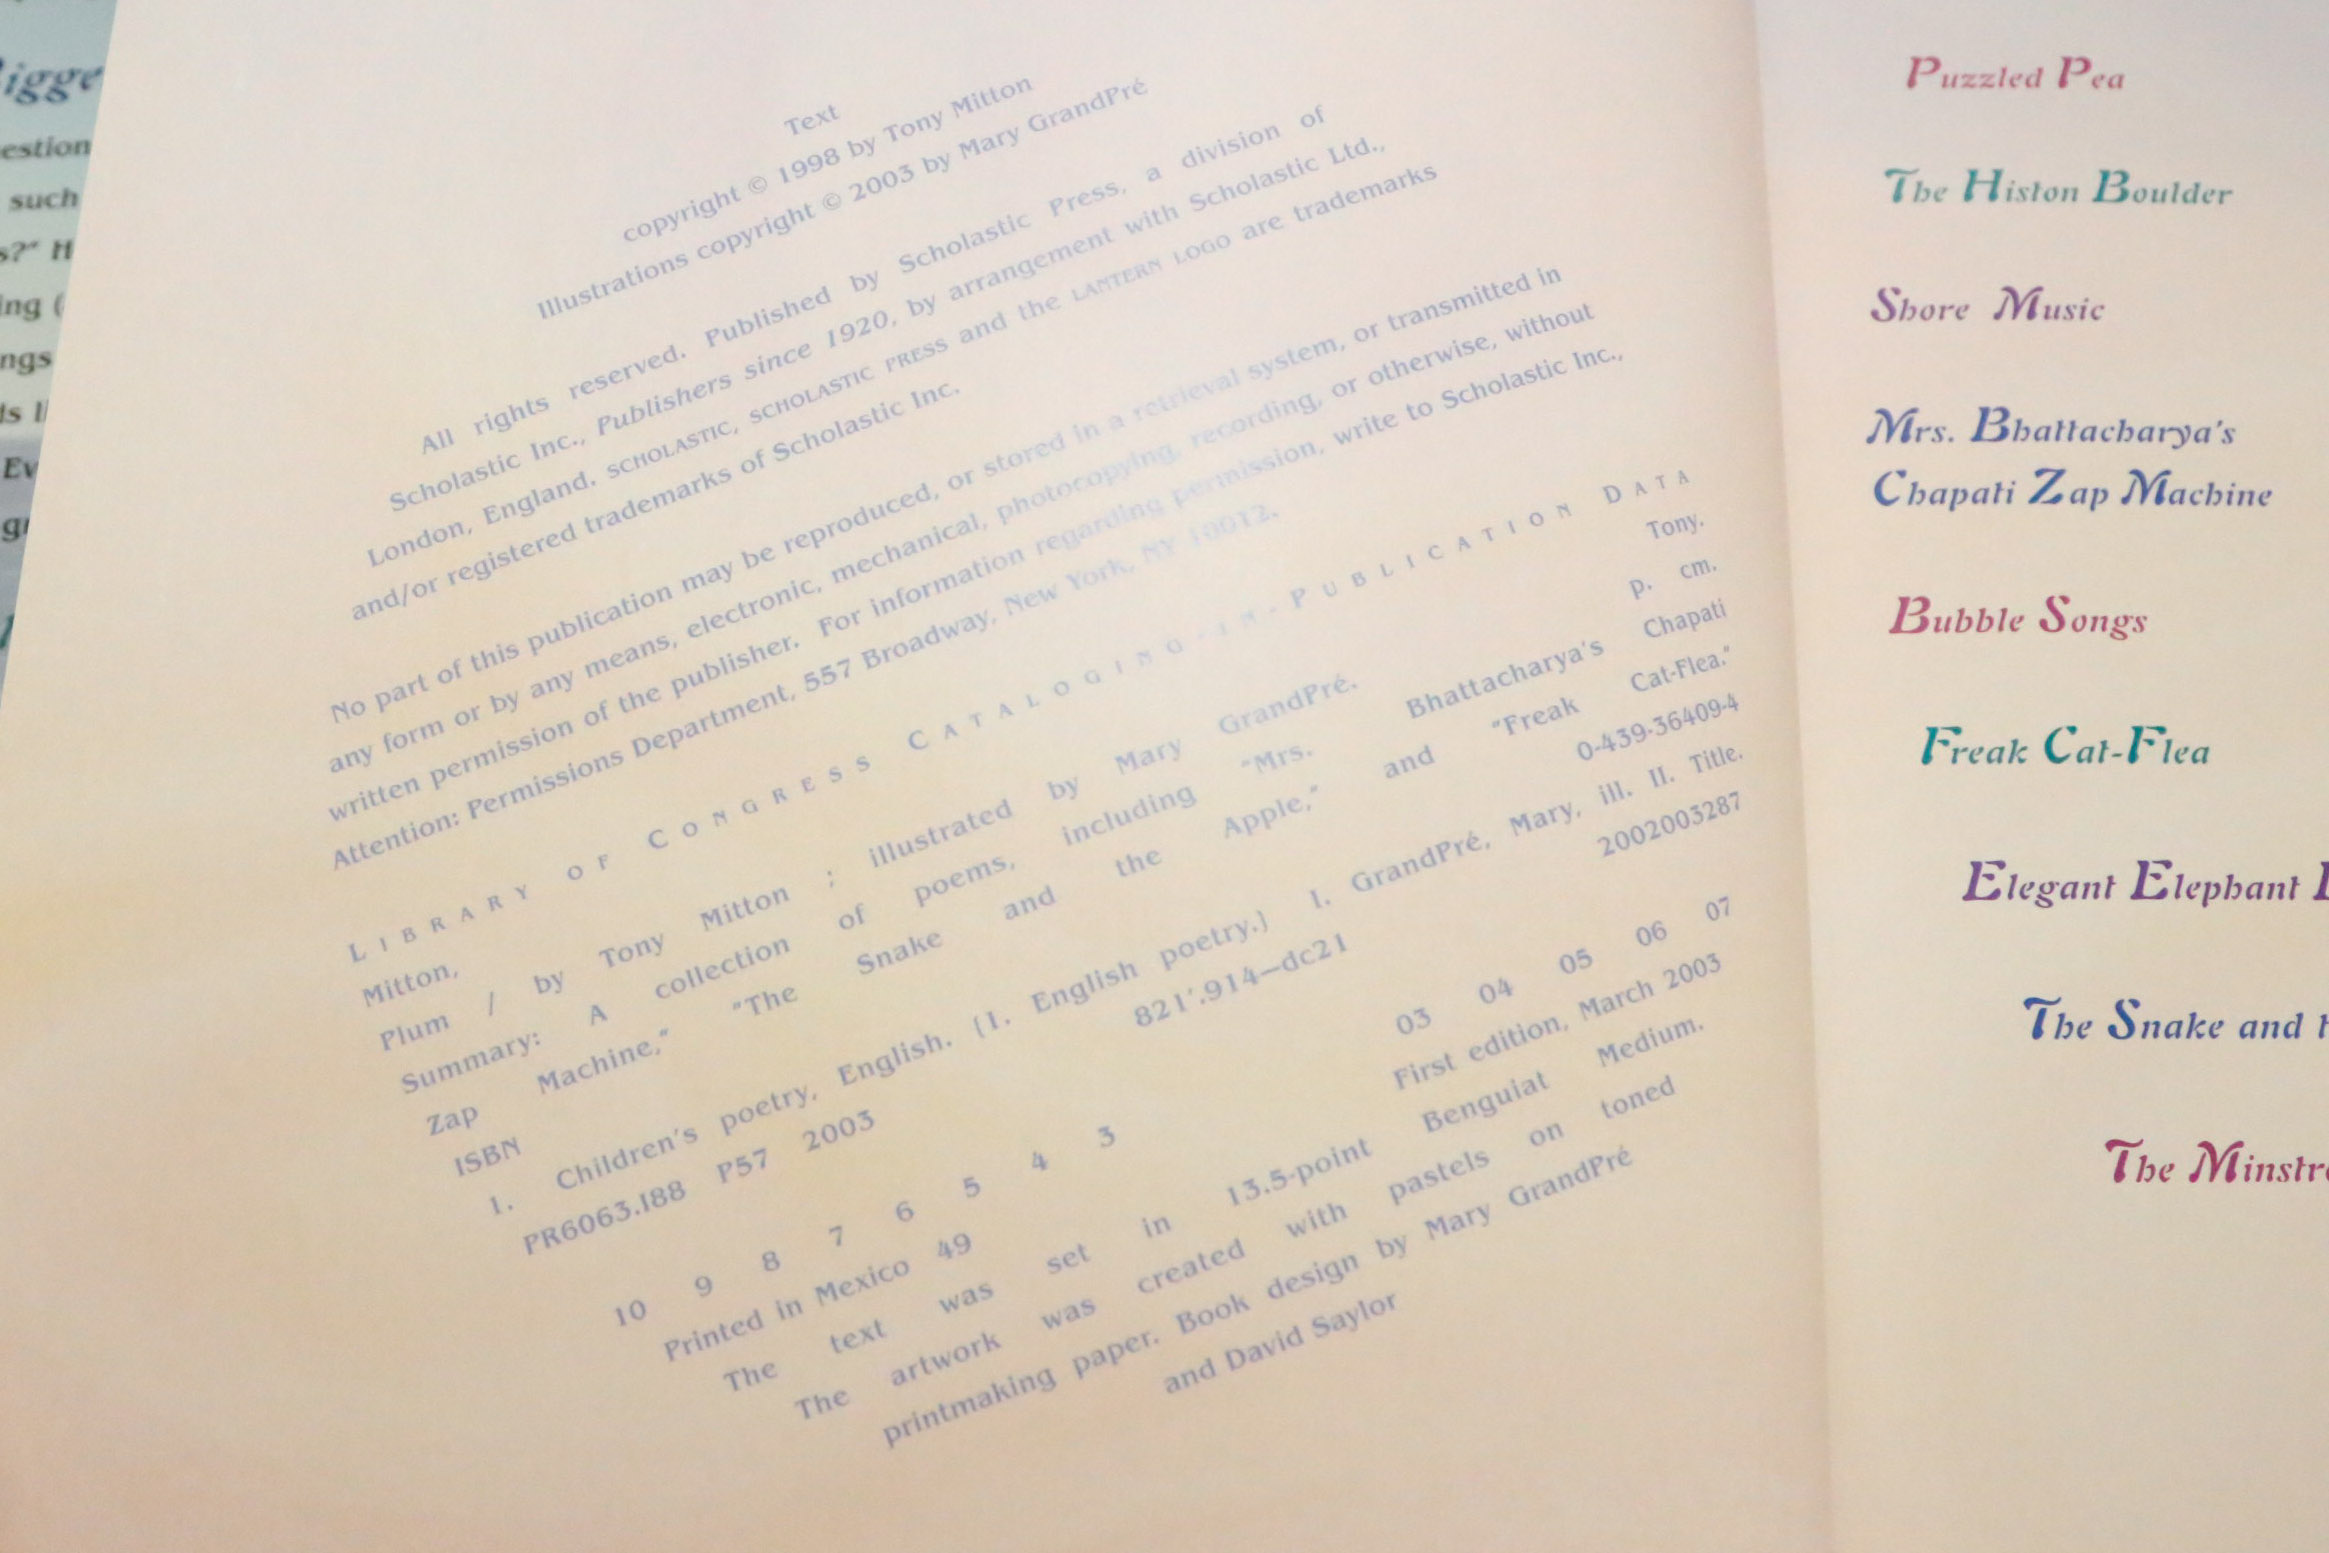 igge
estion
such
s?" H
ing (
ngs
Ev
Text
copyright © 1998 by Tony Mitton
Illustrations copyright © 2003 by Mary GrandPré
All rights reserved. Published by Scholastic Press, a division of
Scholastic Inc., Publishers since 1920, by arrangement with Scholastic Ltd.,
London, England. SCHOLASTIC, SCHOLASTIC PRESS and the LANTERN LOGO are trademarks
and/or registered trademarks of Scholastic Inc.
No part of this publication may be reproduced, or stored in a retrieval system, or transmitted in
any form or by any means, electronic, mechanical, photocopying, recording, or otherwise, without
written permission of the publisher. For information regarding permission, write to Scholastic Inc.,
Attention: Permissions Department, 557 Broadway, New York, NY 10012.
LIBRARY OF CONGRESS CATALOGING-IN-PUBLICATION DATA
Mitton, Tony.
Plum / by Tony Mitton ; illustrated by Mary GrandPré. p. cm.
Summary: A collection of poems, including "Mrs. Bhattacharya's Chapati
Zap Machine," "The Snake and the Apple," and "Freak Cat-Flea."
ISBN 0-439-36409-4
1. Children's poetry, English. (1. English poetry.) I. GrandPré, Mary, ill. II. Title.
PR6063.I88 P57 2003 821'.914—dc21 2002003287
10 9 8 7 6 5 4 3 03 04 05 06 07
Printed in Mexico 49 First edition, March 2003
The text was set in 13.5-point Benguiat Medium.
The artwork was created with pastels on toned
printmaking paper. Book design by Mary GrandPré
and David Saylor
Puzzled Pea
The Histon Boulder
Shore Music
Mrs. Bhattacharya's
Chapati Zap Machine
Bubble Songs
Freak Cat-Flea
Elegant Elephant
The Snake and
The Minstr